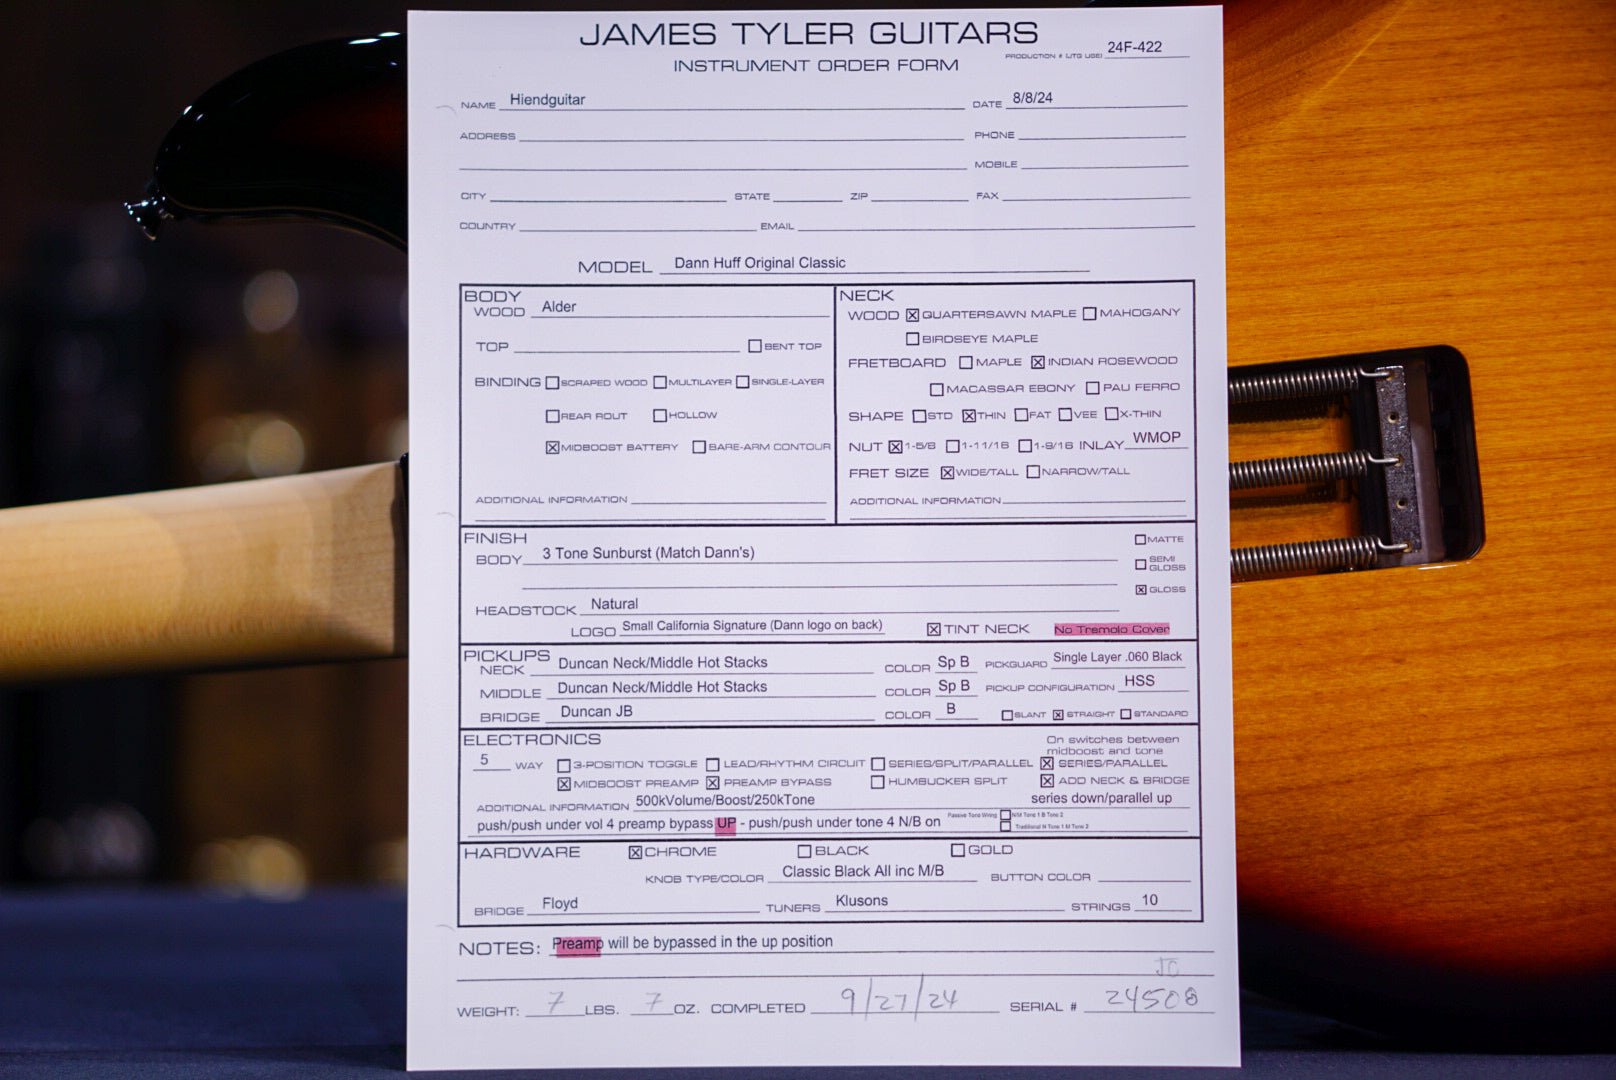 JAMES TYLER GUITARS
INSTRUMENT ORDER FORM
PRODUCTION # (JTG USE) 24F-422
NAME Hiendguitar DATE 8/8/24
ADDRESS PHONE
MOBILE
CITY STATE ZIP FAX
COUNTRY EMAIL
MODEL Dann Huff Original Classic
BODY
WOOD Alder
TOP BENT TOP
BINDING SCRAPED WOOD MULTILAYER SINGLE-LAYER
REAR ROUT HOLLOW
MIDBOOST BATTERY BARE-ARM CONTOUR
ADDITIONAL INFORMATION
NECK
WOOD QUARTERSAWN MAPLE MAHOGANY
BIRDSEYE MAPLE
FRETBOARD MAPLE INDIAN ROSEWOOD
MACASSAR EBONY PAU FERRO
SHAPE STD THIN FAT VEE X-THIN
NUT 1-5/8 1-11/16 1-9/16 INLAY WMOP
FRET SIZE WIDE/TALL NARROW/TALL
ADDITIONAL INFORMATION
FINISH
BODY 3 Tone Sunburst (Match Dann's)
MATTE
SEMI GLOSS
GLOSS
HEADSTOCK Natural
LOGO Small California Signature (Dann logo on back) TINT NECK No Tremolo Cover
PICKUPS
NECK Duncan Neck/Middle Hot Stacks COLOR Sp B PICKGUARD Single Layer .060 Black
MIDDLE Duncan Neck/Middle Hot Stacks COLOR Sp B PICKUP CONFIGURATION HSS
BRIDGE Duncan JB COLOR B SLANT STRAIGHT STANDARD
ELECTRONICS
On switches between
midboost and tone
5 WAY 3-POSITION TOGGLE LEAD/RHYTHM CIRCUIT SERIES/SPLIT/PARALLEL SERIES/PARALLEL
MIDBOOST PREAMP PREAMP BYPASS HUMBUCKER SPLIT ADD NECK & BRIDGE
ADDITIONAL INFORMATION 500kVolume/Boost/250kTone series down/parallel up
push/push under vol 4 preamp bypass UP - push/push under tone 4 N/B on Passive Tone Wiring N/M Tone 1 B Tone 2
Traditional N Tone 1 M Tone 2
HARDWARE CHROME BLACK GOLD
KNOB TYPE/COLOR Classic Black All inc M/B BUTTON COLOR
BRIDGE Floyd TUNERS Klusons STRINGS 10
NOTES: Preamp will be bypassed in the up position
WEIGHT: 7 LBS. 7 OZ. COMPLETED 9/27/24 SERIAL # 24508